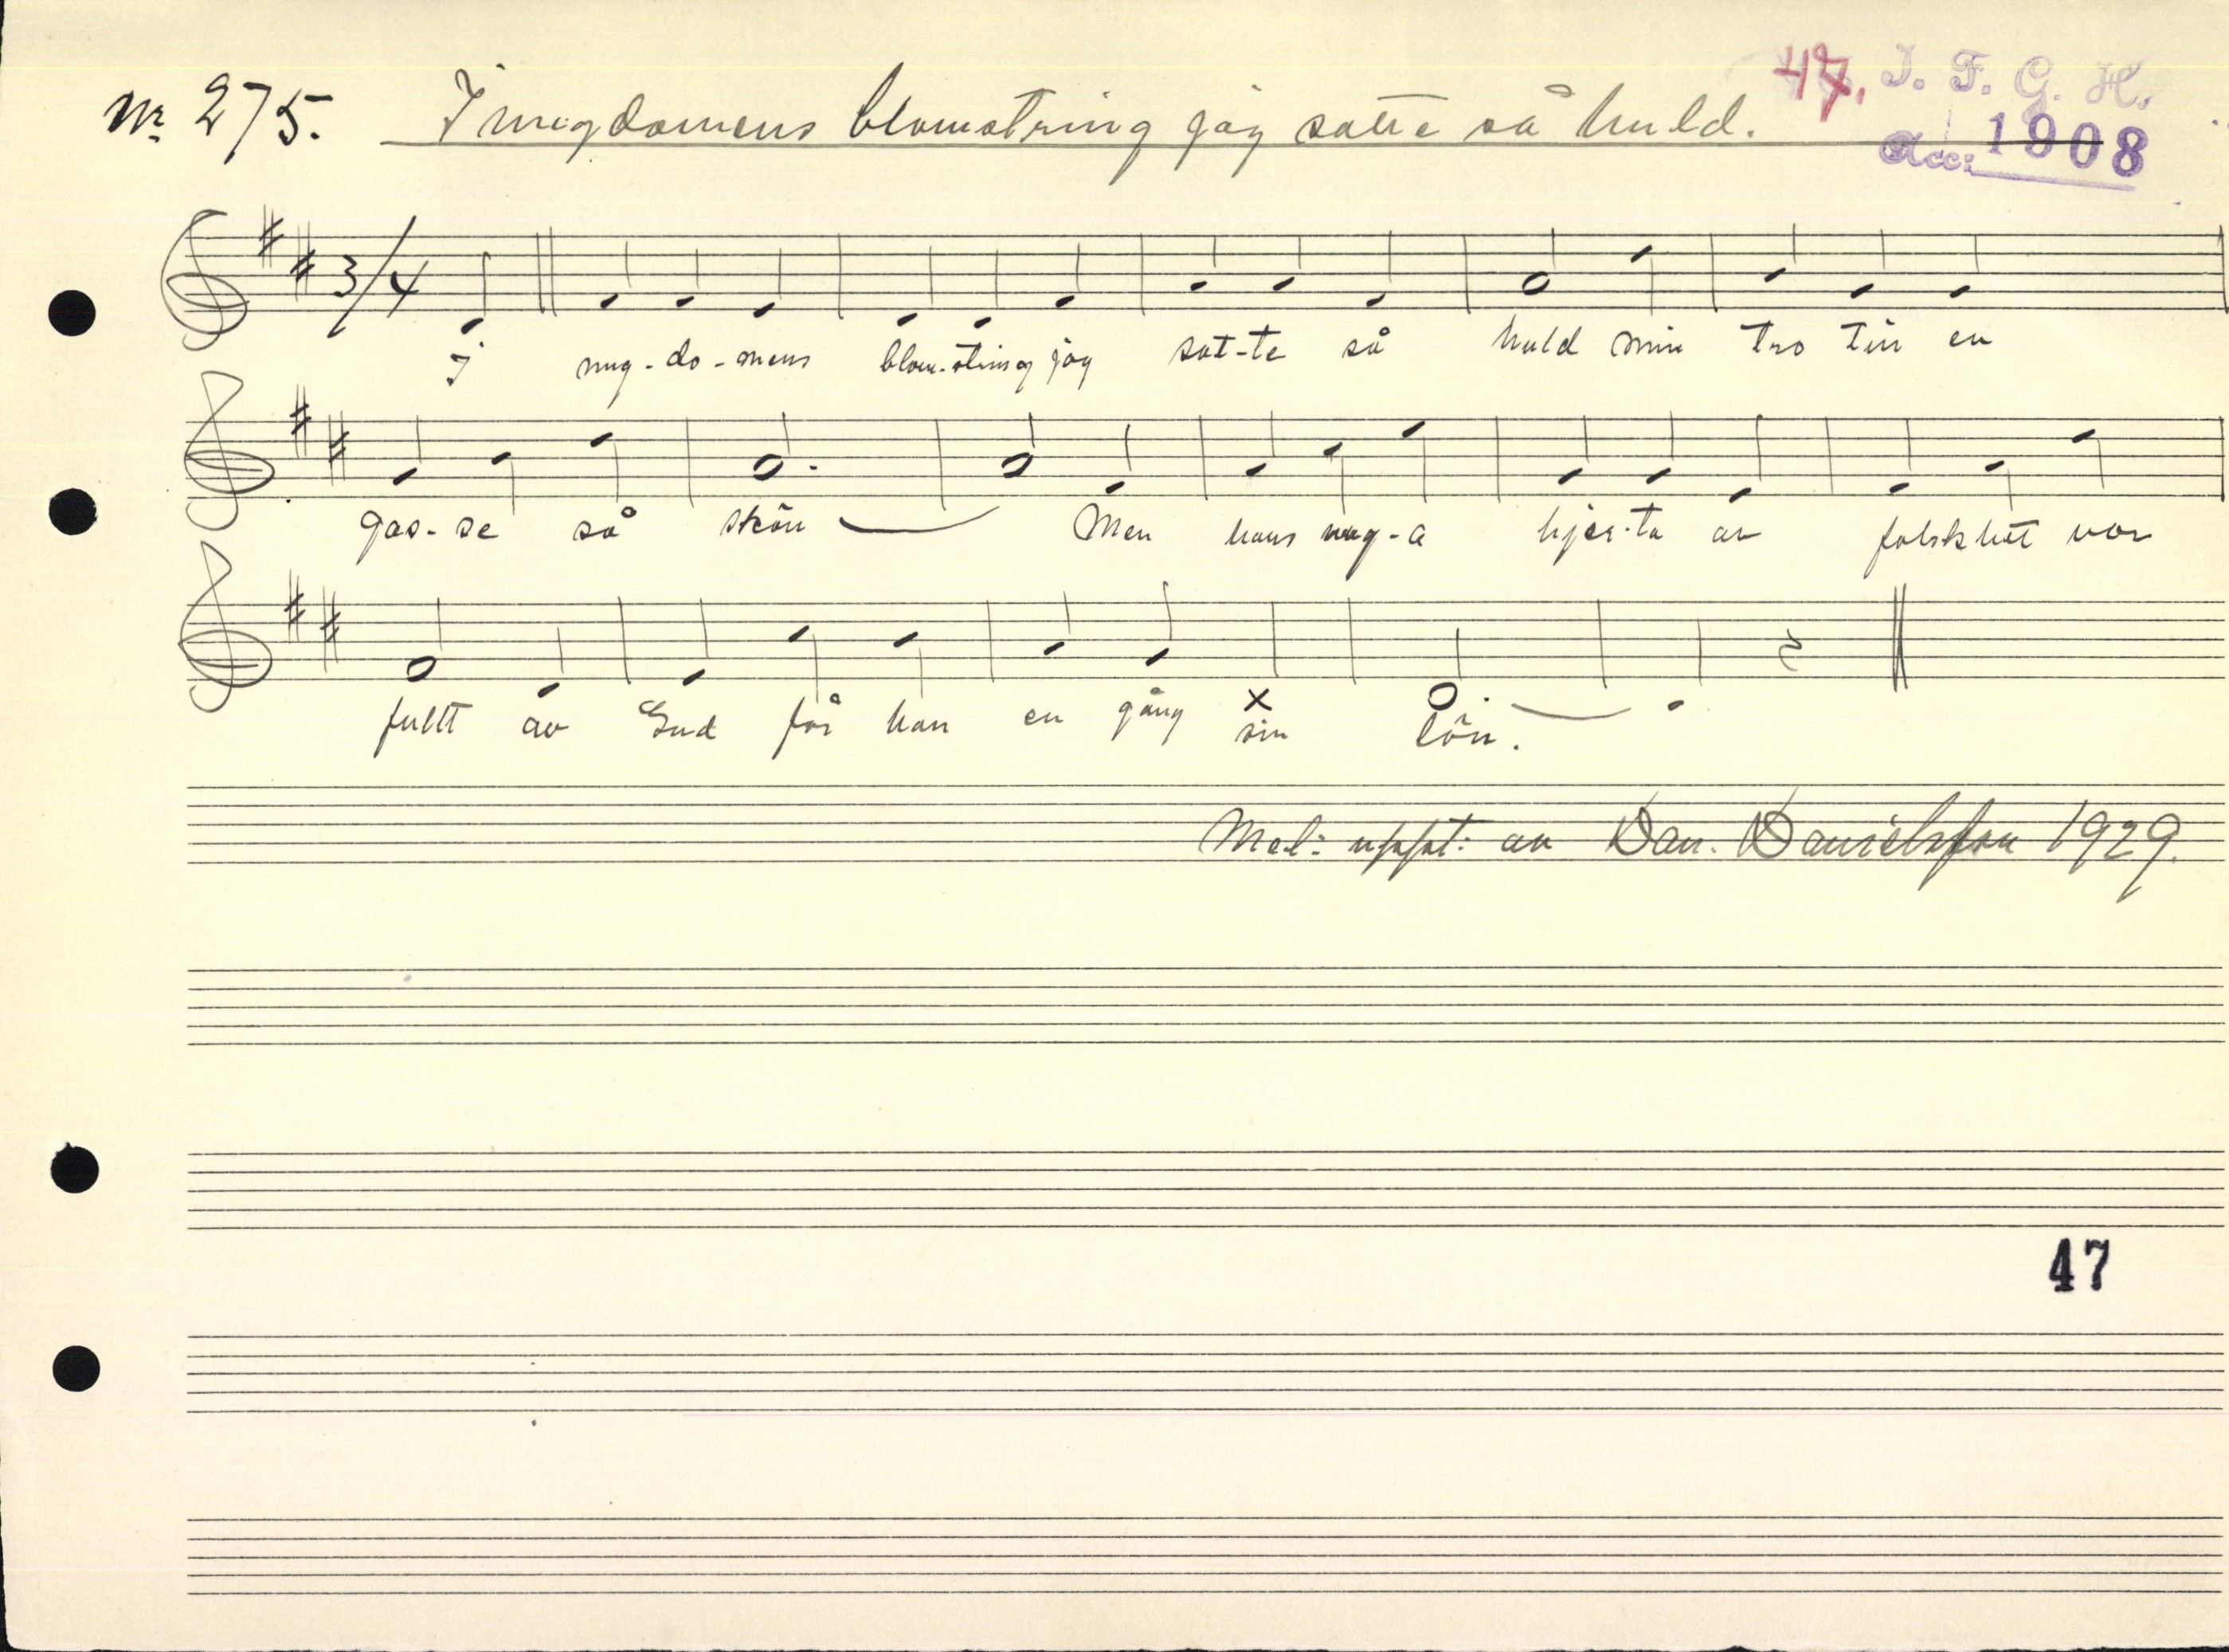 Nr 275. I ungdomens blomstring jag satte så huld. 47. I. F. G. H.
Acc: 1908
3/4
I ung-do-mens blom-string jag sat-te så huld min tro till en
gos-se så skön Men hans ung-a hjer-ta av falskhet var
fullt av Gud får han en gång sin lön.
Mel: uppt: av Dan. Danielsson 1929.
47